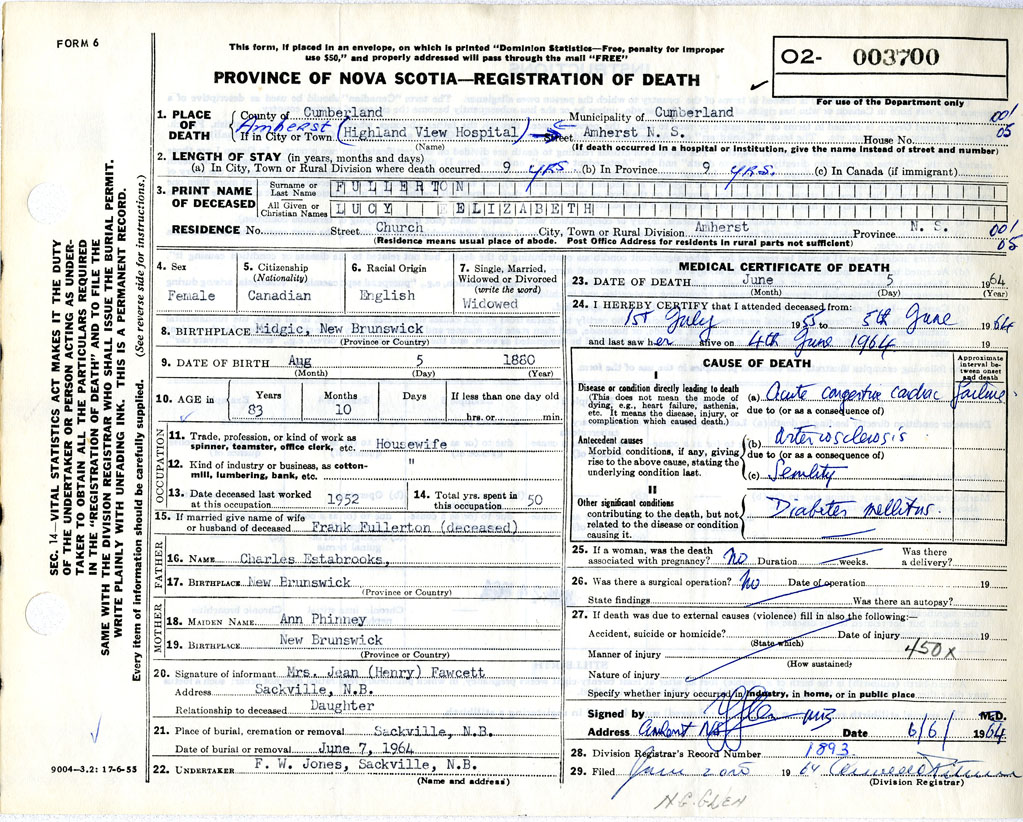 FORM 6
This form, if placed in an envelope, on which is printed "Dominion Statistics—Free, penalty for improper
use $50," and properly addressed will pass through the mail "FREE"
PROVINCE OF NOVA SCOTIA—REGISTRATION OF DEATH
02- 003700
For use of the Department only
SEC. 14—VITAL STATISTICS ACT MAKES IT THE DUTY
OF THE UNDERTAKER OR PERSON ACTING AS UNDER-
TAKER TO OBTAIN ALL THE PARTICULARS REQUIRED
IN THE "REGISTRATION OF DEATH" AND TO FILE THE
SAME WITH THE DIVISION REGISTRAR WHO SHALL ISSUE THE BURIAL PERMIT.
WRITE PLAINLY WITH UNFADING INK. THIS IS A PERMANENT RECORD.
Every item of information should be carefully supplied. (See reverse side for instructions.)
1. PLACE OF DEATH
County of Cumberland Municipality of Cumberland 001
Amherst
If in City or Town (Highland View Hospital) Street Amherst N. S. House No. 05
(Name) (If death occurred in a hospital or institution, give the name instead of street and number)
2. LENGTH OF STAY (in years, months and days)
(a) In City, Town or Rural Division where death occurred 9 yrs (b) In Province 9 yrs. (c) In Canada (if immigrant)
3. PRINT NAME OF DECEASED
Surname or Last Name FULLERTON
All Given or Christian Names LUCY ELIZABETH
RESIDENCE No. Street Church City, Town or Rural Division Amherst Province N. S. 001
(Residence means usual place of abode. Post Office Address for residents in rural parts not sufficient) 05
4. Sex Female
5. Citizenship (Nationality) Canadian
6. Racial Origin English
7. Single, Married, Widowed or Divorced (write the word) Widowed
8. BIRTHPLACE Midgic, New Brunswick
(Province or Country)
9. DATE OF BIRTH Aug 5 1880
(Month) (Day) (Year)
10. AGE in Years 83 Months 10 Days If less than one day old hrs. or min.
OCCUPATION
11. Trade, profession, or kind of work as
spinner, teamster, office clerk, etc. Housewife
12. Kind of industry or business, as cotton-
mill, lumbering, bank, etc. "
13. Date deceased last worked at this occupation 1952
14. Total yrs. spent in this occupation 50
15. If married give name of wife
or husband of deceased Frank Fullerton (deceased)
FATHER
16. NAME Charles Estabrooks,
17. BIRTHPLACE New Brunswick
(Province or Country)
MOTHER
18. MAIDEN NAME Ann Phinney
19. BIRTHPLACE New Brunswick
(Province or Country)
20. Signature of informant Mrs. Jean (Henry) Fawcett
Address Sackville, N.B.
Relationship to deceased Daughter
21. Place of burial, cremation or removal Sackville, N.B.
Date of burial or removal June 7, 1964
22. UNDERTAKER F. W. Jones, Sackville, N.B.
(Name and address)
9004-3.2: 17-6-55
MEDICAL CERTIFICATE OF DEATH
23. DATE OF DEATH June 5 1964
(Month) (Day) (Year)
24. I HEREBY CERTIFY that I attended deceased from:
1st July 1955 to 5th June 1964
and last saw her alive on 4th June 1964
CAUSE OF DEATH
Approximate interval between onset and death
I
Disease or condition directly leading to death
(This does not mean the mode of
dying, e.g., heart failure, asthenia,
etc. It means the disease, injury, or
complication which caused death.)
(a) Acute congestive cardiac failure.
due to (or as a consequence of)
Antecedent causes
Morbid conditions, if any, giving
rise to the above cause, stating the
underlying condition last.
(b) Arteriosclerosis
due to (or as a consequence of)
(c) Senility
II
Other significant conditions
contributing to the death, but not
related to the disease or condition
causing it.
Diabetes mellitus.
25. If a woman, was the death
associated with pregnancy? No Duration weeks. Was there a delivery?
26. Was there a surgical operation? No Date of operation 19
State findings Was there an autopsy?
27. If death was due to external causes (violence) fill in also the following:—
Accident, suicide or homicide? Date of injury 19
(State which)
Manner of injury 450x
(How sustained)
Nature of injury
Specify whether injury occurred in industry, in home, or in public place
Signed by M.D.
Address Amherst NS Date 6/6/ 1964
28. Division Registrar's Record Number 1893
29. Filed 19 64
(Division Registrar)